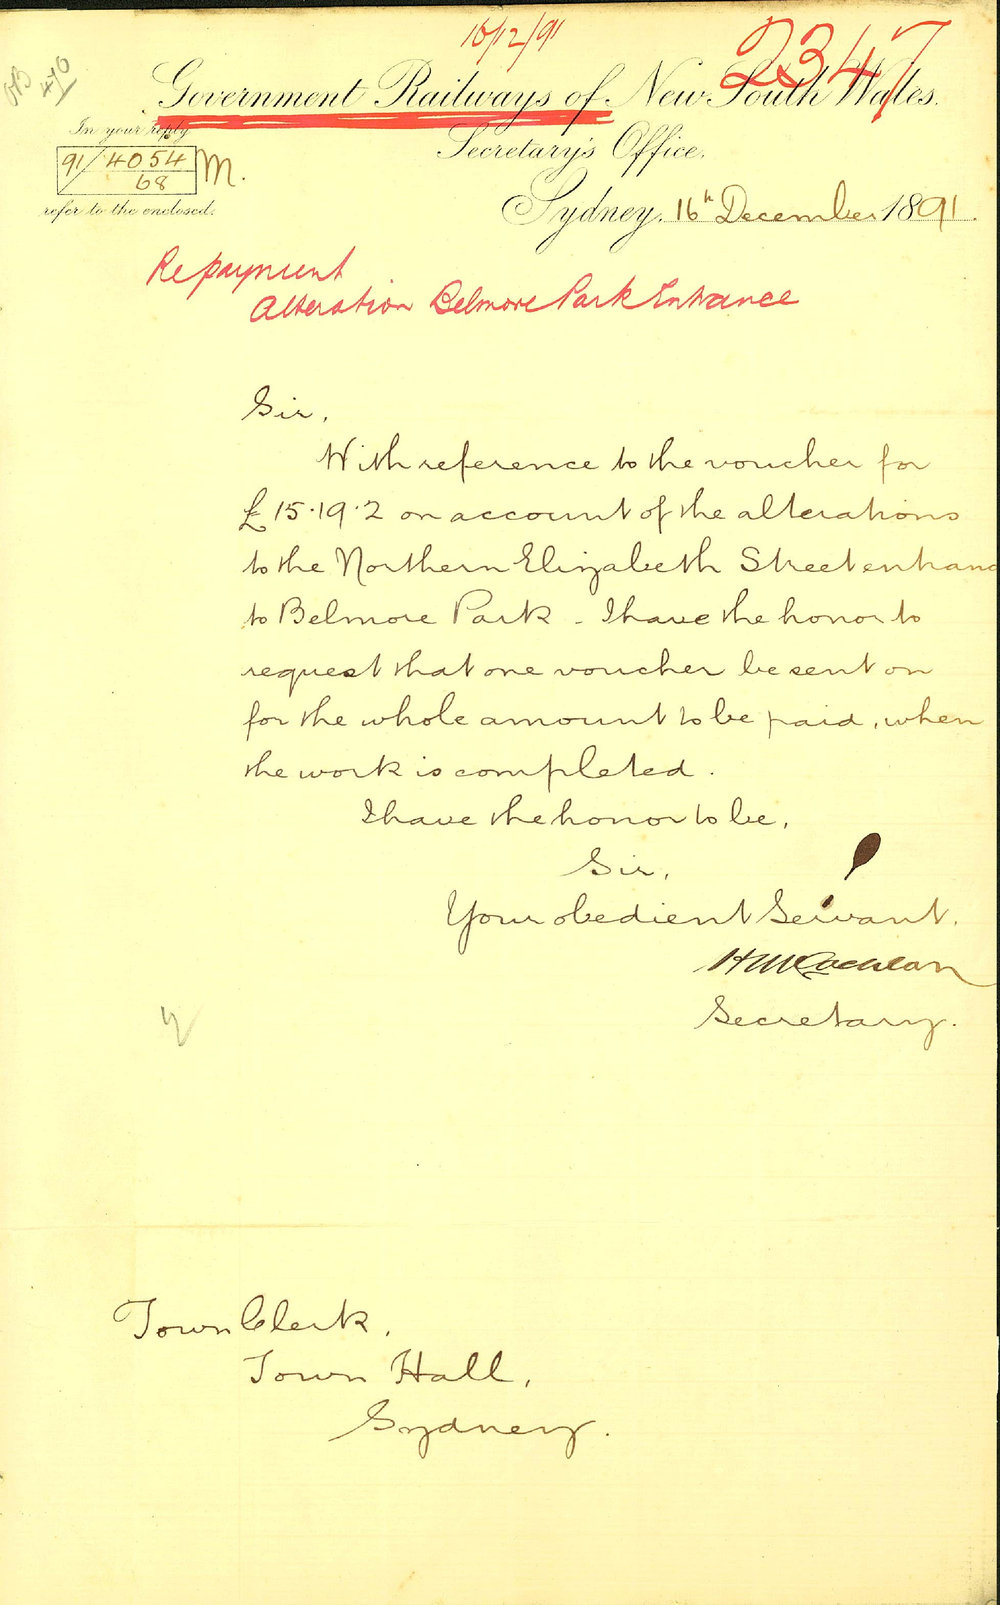 16/12/91
2347
Government Railways of New South Wales.
Secretary's Office.
In your reply
91/4054
68
M.
refer to the enclosed.
Sydney. 16th December 1891.
Repayment
Alteration Belmore Park Entrance
Sir,
With reference to the voucher for
£15.19.2 on account of the alterations
to the Northern Elizabeth Street entranc
to Belmore Park - I have the honor to
request that one voucher be sent on
for the whole amount to be paid, when
the work is completed.
I have the honor to be,
Sir,
Your obedient Servant.
H McLachlan
Secretary.
Town Clerk,
Town Hall,
Sydney.